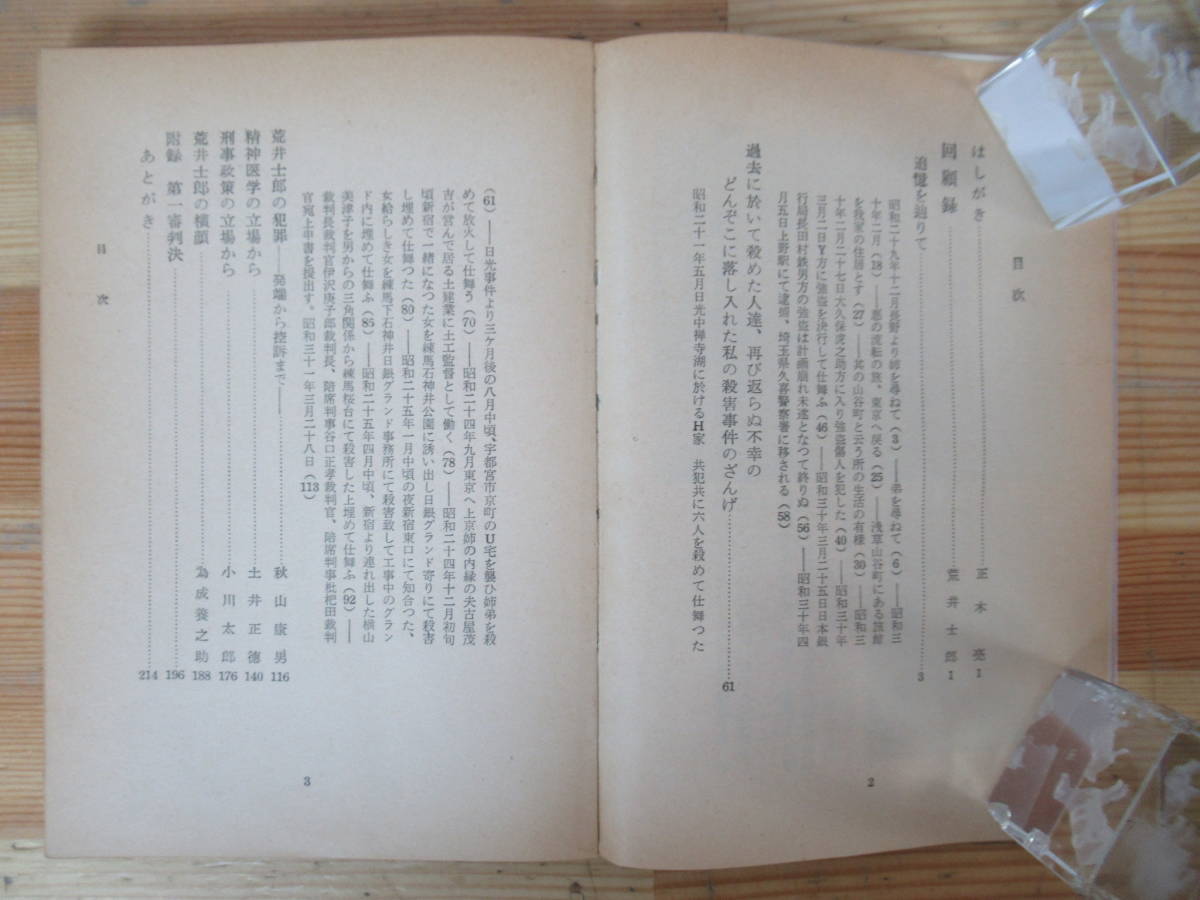 目次
はしがき……正木亮 1
回顧録……荒井士郎 1
追憶を辿りて……3
昭和二十九年十二月長野より姉を尋ねて(3)――弟を尋ねて(6)――昭和三
十年二月(18)――悪の流転の旅、東京へ戻る(25)――浅草山谷町にある旅館
を我家の住居とす(27)――其の山谷町と云う所の生活の有様(30)――昭和三
十年二月二十七日大久保虎之助方に入り強盗傷人を犯した(40)――昭和三十年
三月二日Y方に強盗を決行して仕舞ふ(46)――昭和三十年三月二十五日日本銀
行局長田村鉄男方の強盗は計画崩れ未遂となつて終りぬ(56)――昭和三十年四
月五日上野駅にて逮捕、埼玉県久喜警察署に移される(58)
過去に於いて殺めた人達、再び返らぬ不幸の
どんぞこに落し入れた私の殺害事件のざんげ……61
昭和二十一年五月日光中禅寺湖に於けるH家 共犯共に六人を殺めて仕舞つた
2
(61)――日光事件より三ヶ月後の八月中頃、宇都宮市京町のU宅を襲ひ姉弟を殺
めて放火して仕舞う(70)――昭和二十四年九月東京へ上京姉の内縁の夫古屋茂
吉が営んで居る土建業に土工監督として働く(78)――昭和二十四年十二月初旬
頃新宿で一緒になつた女を練馬石神井公園に誘い出し日銀グランド寄りにて殺害
し埋めて仕舞つた(80)――昭和二十五年一月中頃の夜新宿東口にて知合つた、
女給らしき女を練馬下石神井日銀グランド事務所にて殺害致して工事中のグラン
ド内に埋めて仕舞ふ(85)――昭和二十五年四月中頃、新宿より連れ出した横山
美津子を男からの三角関係から練馬桜台にて殺害した上埋めて仕舞ふ(92)――
裁判長裁判官伊沢庚子郎裁判長、陪席判事谷口正孝裁判官、陪席判事枇杷田裁判
官宛上申書を提出す。昭和三十一年三月二十八日(113)
荒井士郎の犯罪――発端から控訴まで――……秋山康男 116
精神医学の立場から……土井正徳 140
刑事政策の立場から……小川太郎 176
荒井士郎の横顔……為成養之助 188
附録 第一審判決……196
あとがき……214
目次
3